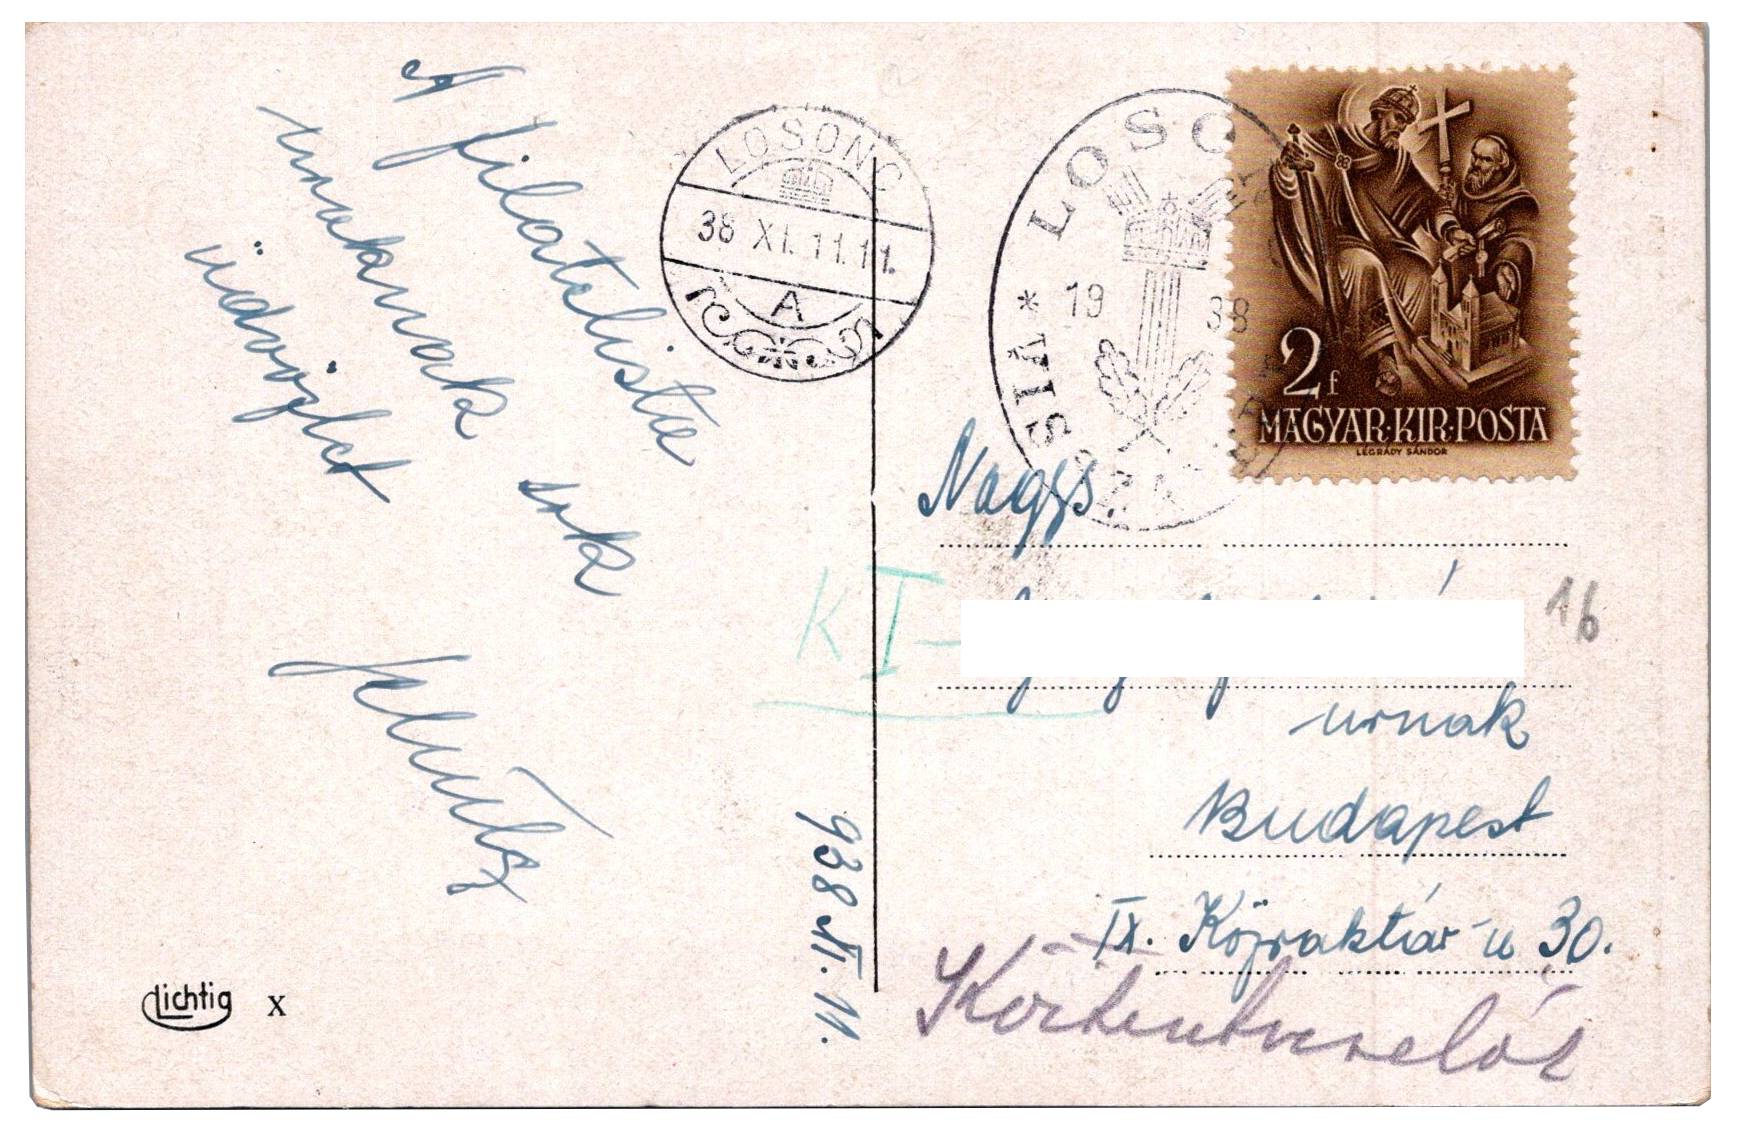 A filatelista
urnaknak sok
üdvözlet
938 XI. 11.
Lichtig X
LOSONC
38 XI. 11. 11.
A
LOSO
VISSZA
19 38
2f
MAGYAR·KIR·POSTA
LÉGRÁDY SÁNDOR
Nagys.
KI-
16
urnak
Budapest
IX. Közraktár u 30.